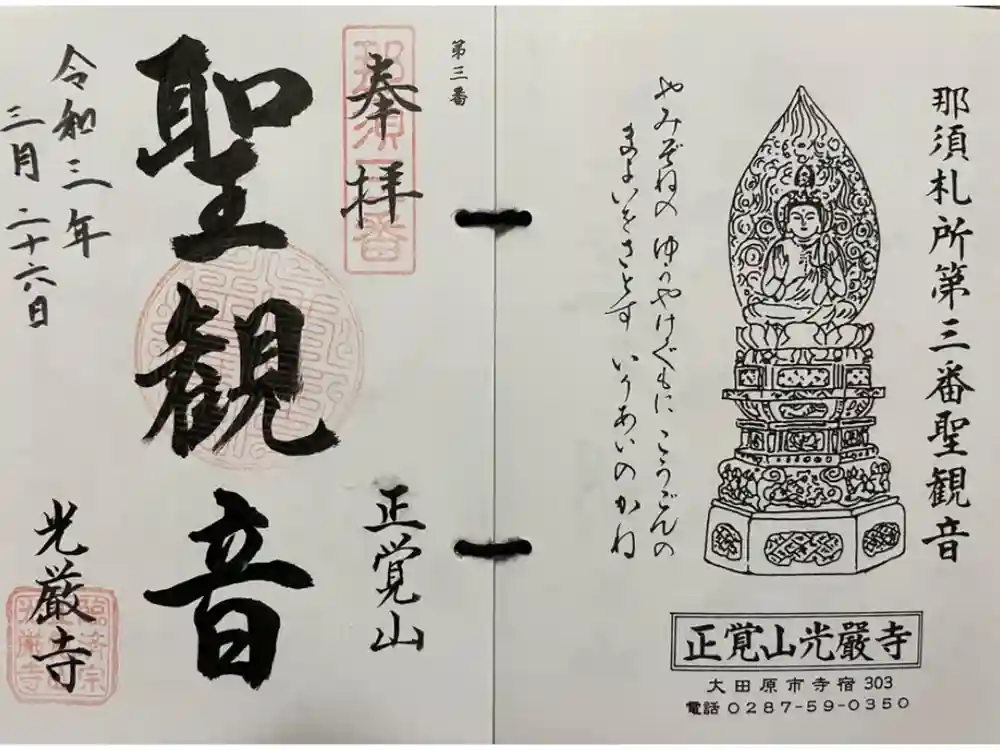 那須札所第三番聖観音
やみぞねの ゆうやけぐもに こうごんの
まよいをさとす いりあいのかね
正覚山光嚴寺
大田原市寺宿 303
電話 0287-59-0350
第三番
奉拝
那須三番
聖観音
正覚山
令和三年
三月二十六日
光厳寺
臨済宗
光厳寺